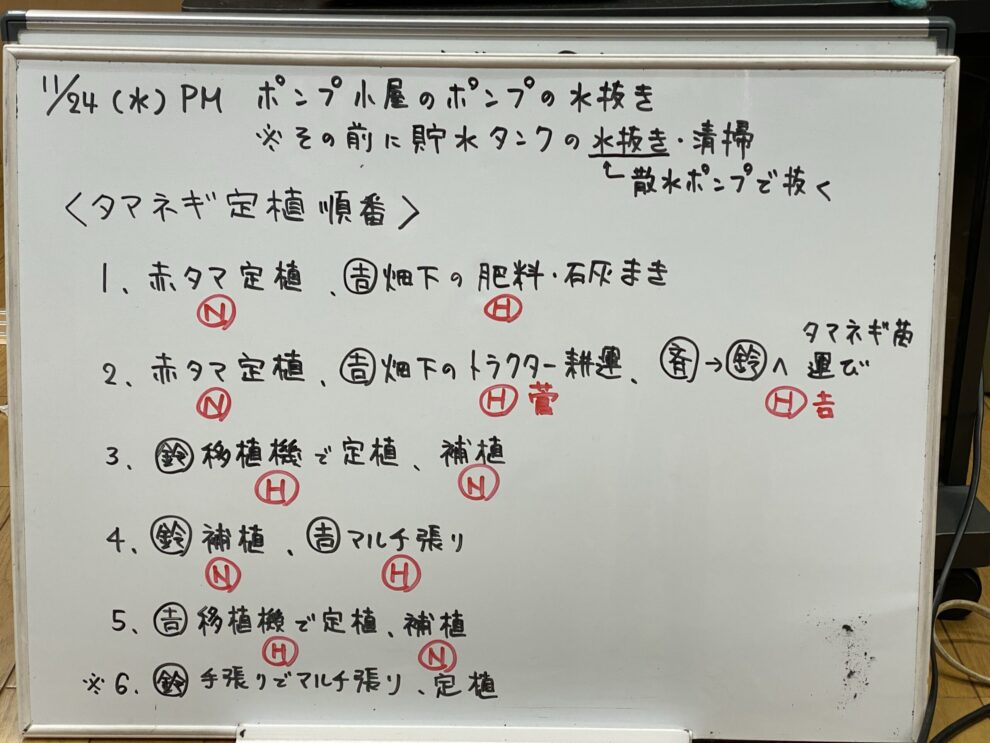 11/24(水)PM ポンプ小屋のポンプの水抜き
※その前に貯水タンクの水抜き・清掃
↑散水ポンプで抜く
〈タマネギ定植順番〉
1、赤タマ定植、㊉畑下の肥料・石灰まき
N H
2、赤タマ定植、吉畑下のトラクター耕運、斉→鈴へ タマネギ苗運び
N H 菅 H 吉
3、鈴移植機で定植、補植
H N
4、鈴補植、吉マルチ張り
N H
5、吉移植機で定植、補植
H N
※6、鈴手張りでマルチ張り、定植